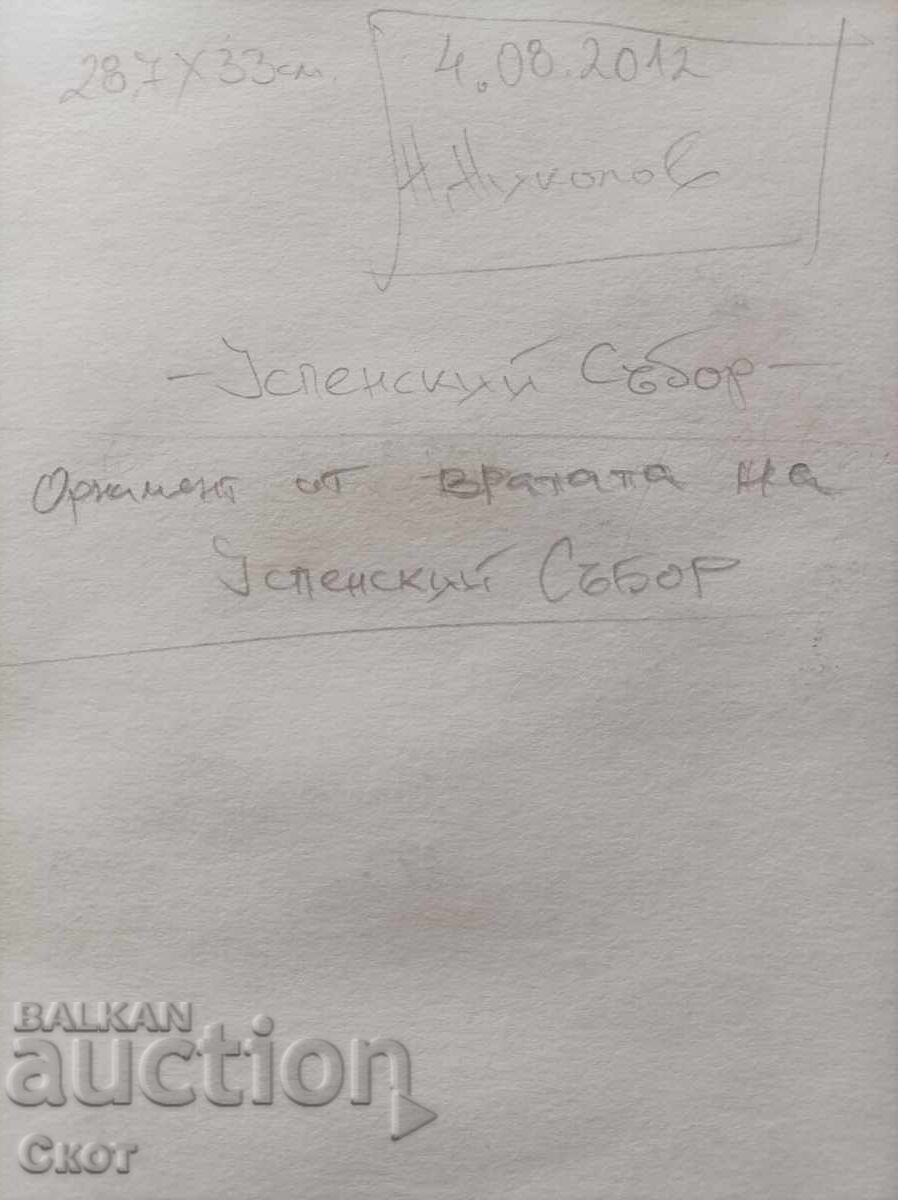 28,7 X 33 см.
4.08.2012
Н. Жуколов
- Успенский Събор -
Орнамент от вратата на
Успенский Събор
BALKAN
auction
Скот